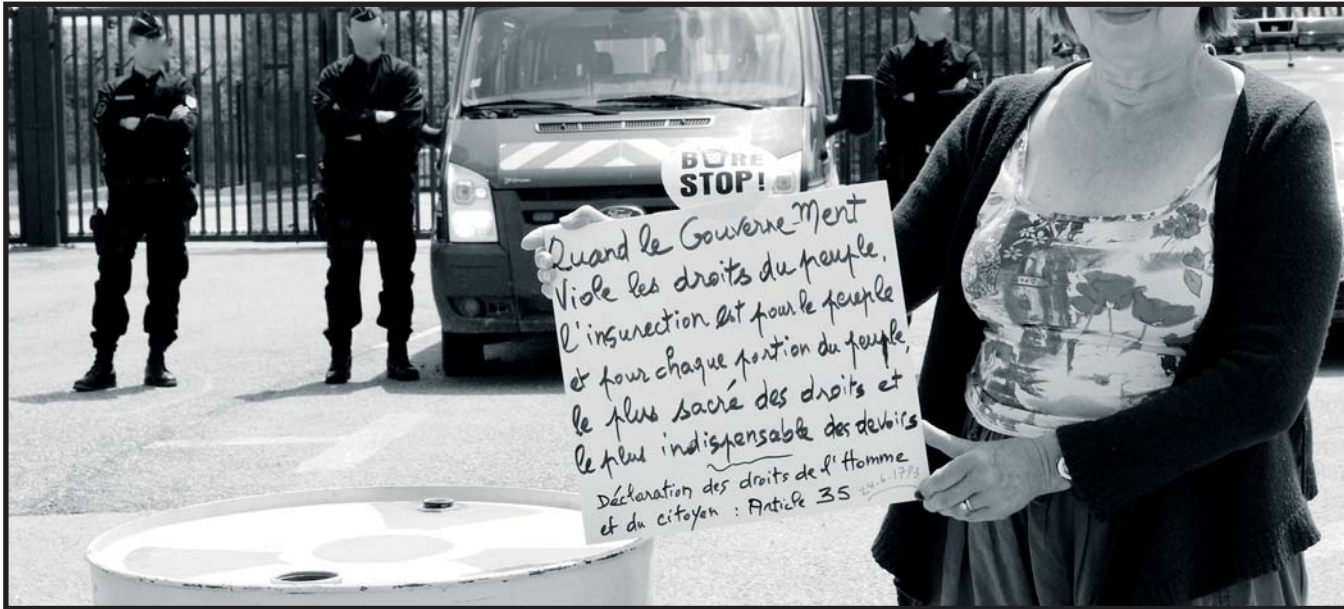 BURE
STOP!
Quand le Gouverne-Ment
Viole les droits du peuple,
l'insurection est pour le peuple
et pour chaque portion du peuple,
le plus sacré des droits et
le plus indispensable des devoirs
Déclaration des droits de l'Homme
et du citoyen : Article 35 24.6.1793